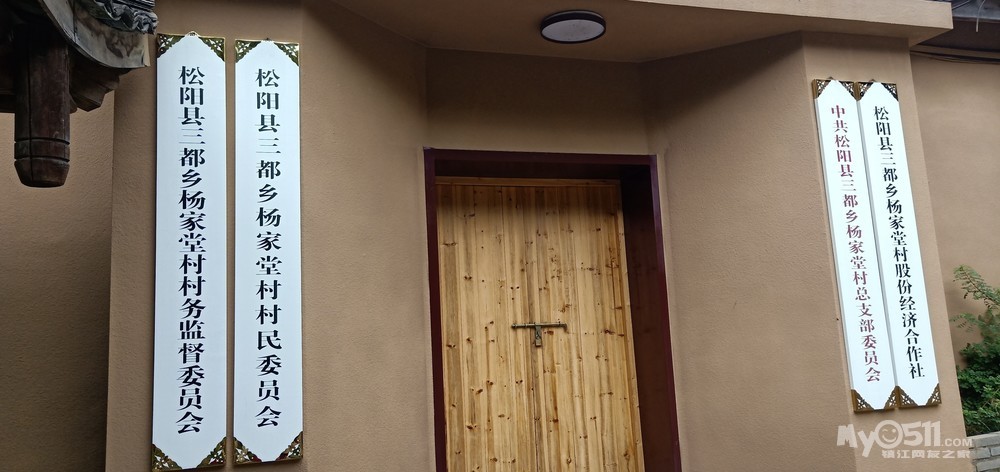 松阳县三都乡杨家堂村村务监督委员会
松阳县三都乡杨家堂村村民委员会
中共松阳县三都乡杨家堂村总支部委员会
松阳县三都乡杨家堂村股份经济合作社
My0511.COM
镇江网友之家